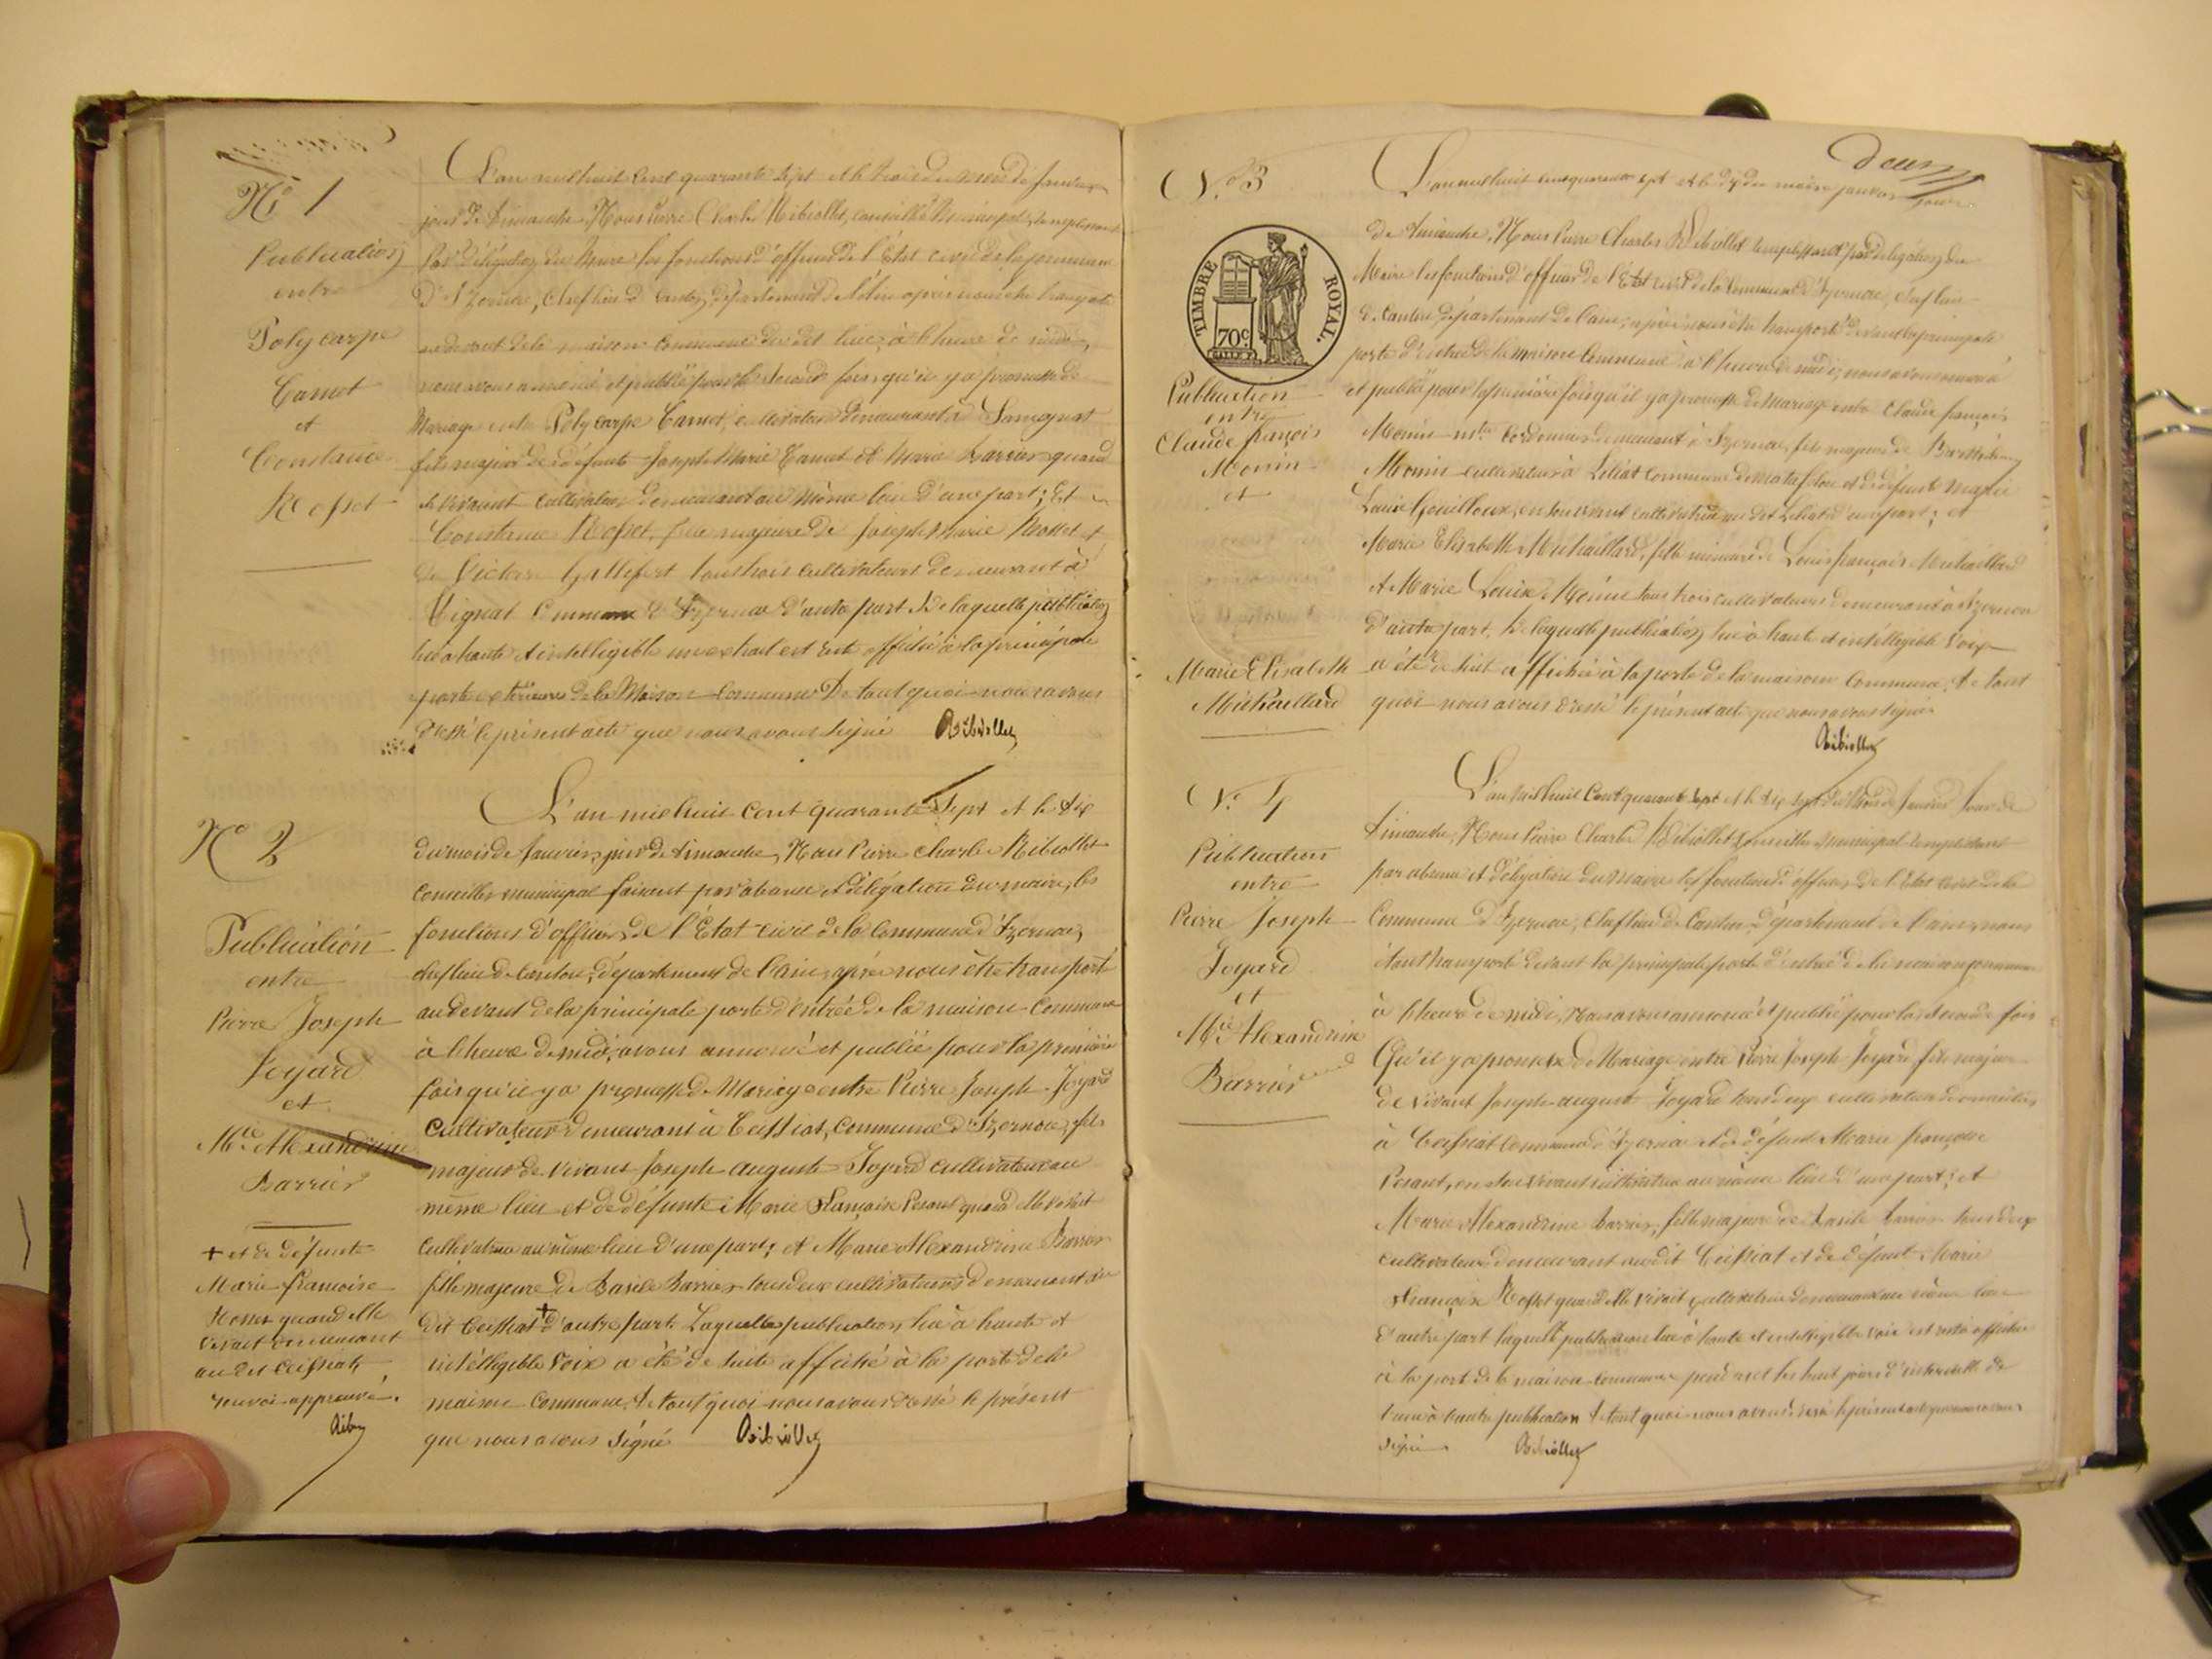 N.º 1
Publication
entre
Polycarpe
Carnot
et
Constance
Rosset
L'an mil huit cent quarante sept et le trois du mois de janvier
jour de dimanche, Nous Pierre Charles Ribiollet, conseiller municipal, remplissant
par délégation du Maire les fonctions d'officier de l'État civil de la commune
d'Izernore, chef lieu de canton, département de l'Ain après nous être transporté
au devant de la maison commune du dit lieu, à l'heure de midi,
nous avons annoncé et publié pour la seconde fois, qu'il y a promesse de
Mariage entre Polycarpe Carnot, cultivateur demeurant à Samognat
fils majeur de défunts Joseph Marie Carnot et Marie Barrier quand
ils vivaient cultivateurs demeurant au même lieu d'une part; Et
Constance Rosset, fille majeure de Joseph Marie Rosset et
de Victoire Gallefert tous trois cultivateurs demeurant à
Vignat commune d'Izernore d'autre part. De laquelle publication
lue à haute et intelligible un extrait est resté affiché à la principale
porte extérieure de la Maison commune De tout quoi nous avons
dressé le présent acte que nous avons signé Ribiollet
N.º 2
Publication
entre
Pierre Joseph
Joyard
et
M.ie Alexandrine
Barrier
+ et de défunte
Marie françoise
Rosset quand elle
vivait demeurant
au dit Ceissiat,
renvoi approuvé.
L'an mil huit cent quarante Sept et le dix
du mois de janvier, jour de dimanche, Nous Pierre Charles Ribiollet
conseiller municipal faisant par absence et délégation du maire, les
fonctions d'officier de l'État civil de la commune d'Izernore,
chef lieu de canton, département de l'ain, après nous être transporté
au devant de la principale porte d'entrée de la maison commune
à l'heure de midi, avons annoncé et publié pour la première
fois qu'il y a promesse de Mariage entre Pierre Joseph Joyard
cultivateur demeurant à Ceissiat, commune d'Izernore, fils
majeur de vivant Joseph auguste Joyard cultivateur au
même lieu et de défunte Marie Françoise Perant quand elle vivait
cultivatrice au même lieu d'une part; et Marie Alexandrine Barrier
fille majeure de Basile Barrier tous deux cultivateurs demeurant au
dit Ceissiat + d'autre part. Laquelle publication, lue à haute et
intelligible voix a été de suite affiché à la porte de la
maison commune, De tout quoi nous avons dressé le présent
que nous avons signé Ribiollet
deux
N.º 3
TIMBRE ROYAL.
70c
Publication
entre
Claude françois
Monin
et
Marie Elisabeth
Michaillard
L'an mil huit cent quarante sept et le dix du mois de janvier jour
de dimanche, Nous Pierre Charles Ribiollet remplissant par délégation du
Maire les fonctions d'officier de l'État civil de la commune d'Izernore, chef lieu
de canton, département de l'ain, après nous être transporté devant la principale
porte d'entrée de la maison commune à l'heure de midi, nous avons annoncé
et publié pour la première fois qu'il y a promesse de mariage entre Claude françois
Monin cordonnier demeurant à Izernore, fils majeur de Barthélemy
Monin cultivateur à Léliat commune de matafelon et de défunte marie
Louise Gouilloux, en son vivant cultivatrice au dit Léliat d'une part; et
Marie Elisabeth Michaillard, fille mineure de Louis françois Michaillard
et Marie Louise tous trois cultivateurs demeurant à Izernore
d'autre part, De laquelle publication, lue à haute et intelligible voix
a été de suite affichée à la porte de la maison commune, De tout
quoi nous avons dressé le présent acte que nous avons signé
Ribiollet
N.º 4
Publication
entre
Pierre Joseph
Joyard
et
M.ie Alexandrine
Barrier
L'an mil huit cent quarante sept et le dix sept du Mois de janvier jour de
dimanche, Nous Pierre Charles Ribiollet Conseiller municipal remplissant
par absence et délégation du maire les fonctions d'officier de l'État civil de la
Commune d'Izernore, Chef lieu de Canton, Département de l'ain, nous
étant transporté devant la principale porte d'entrée de la maison commune
à l'heure de midi, Nous avons annoncé et publié pour la seconde fois
Qu'il y a promesse de Mariage entre Pierre Joseph Joyard fils majeur
de vivant Joseph auguste Joyard tous deux cultivateurs domiciliés
à Ceissiat commune d'Izernore et de défunte Marie françoise
Perant, en son vivant cultivatrice au même lieu d'une part; et
Marie Alexandrine Barrier, fille majeure de Basile Barrier tous deux
cultivateurs demeurant au dit Ceissiat et de défunte Marie
Françoise Rosset quand elle vivait cultivatrice demeurant au même lieu
d'autre part laquelle publication lue à haute et intelligible voix est resté affichée
à la porte de la maison commune pendant les huit jours d'intervalle de
l'une à l'autre publication De tout quoi nous avons dressé le présent acte que nous avons
signé Ribiollet